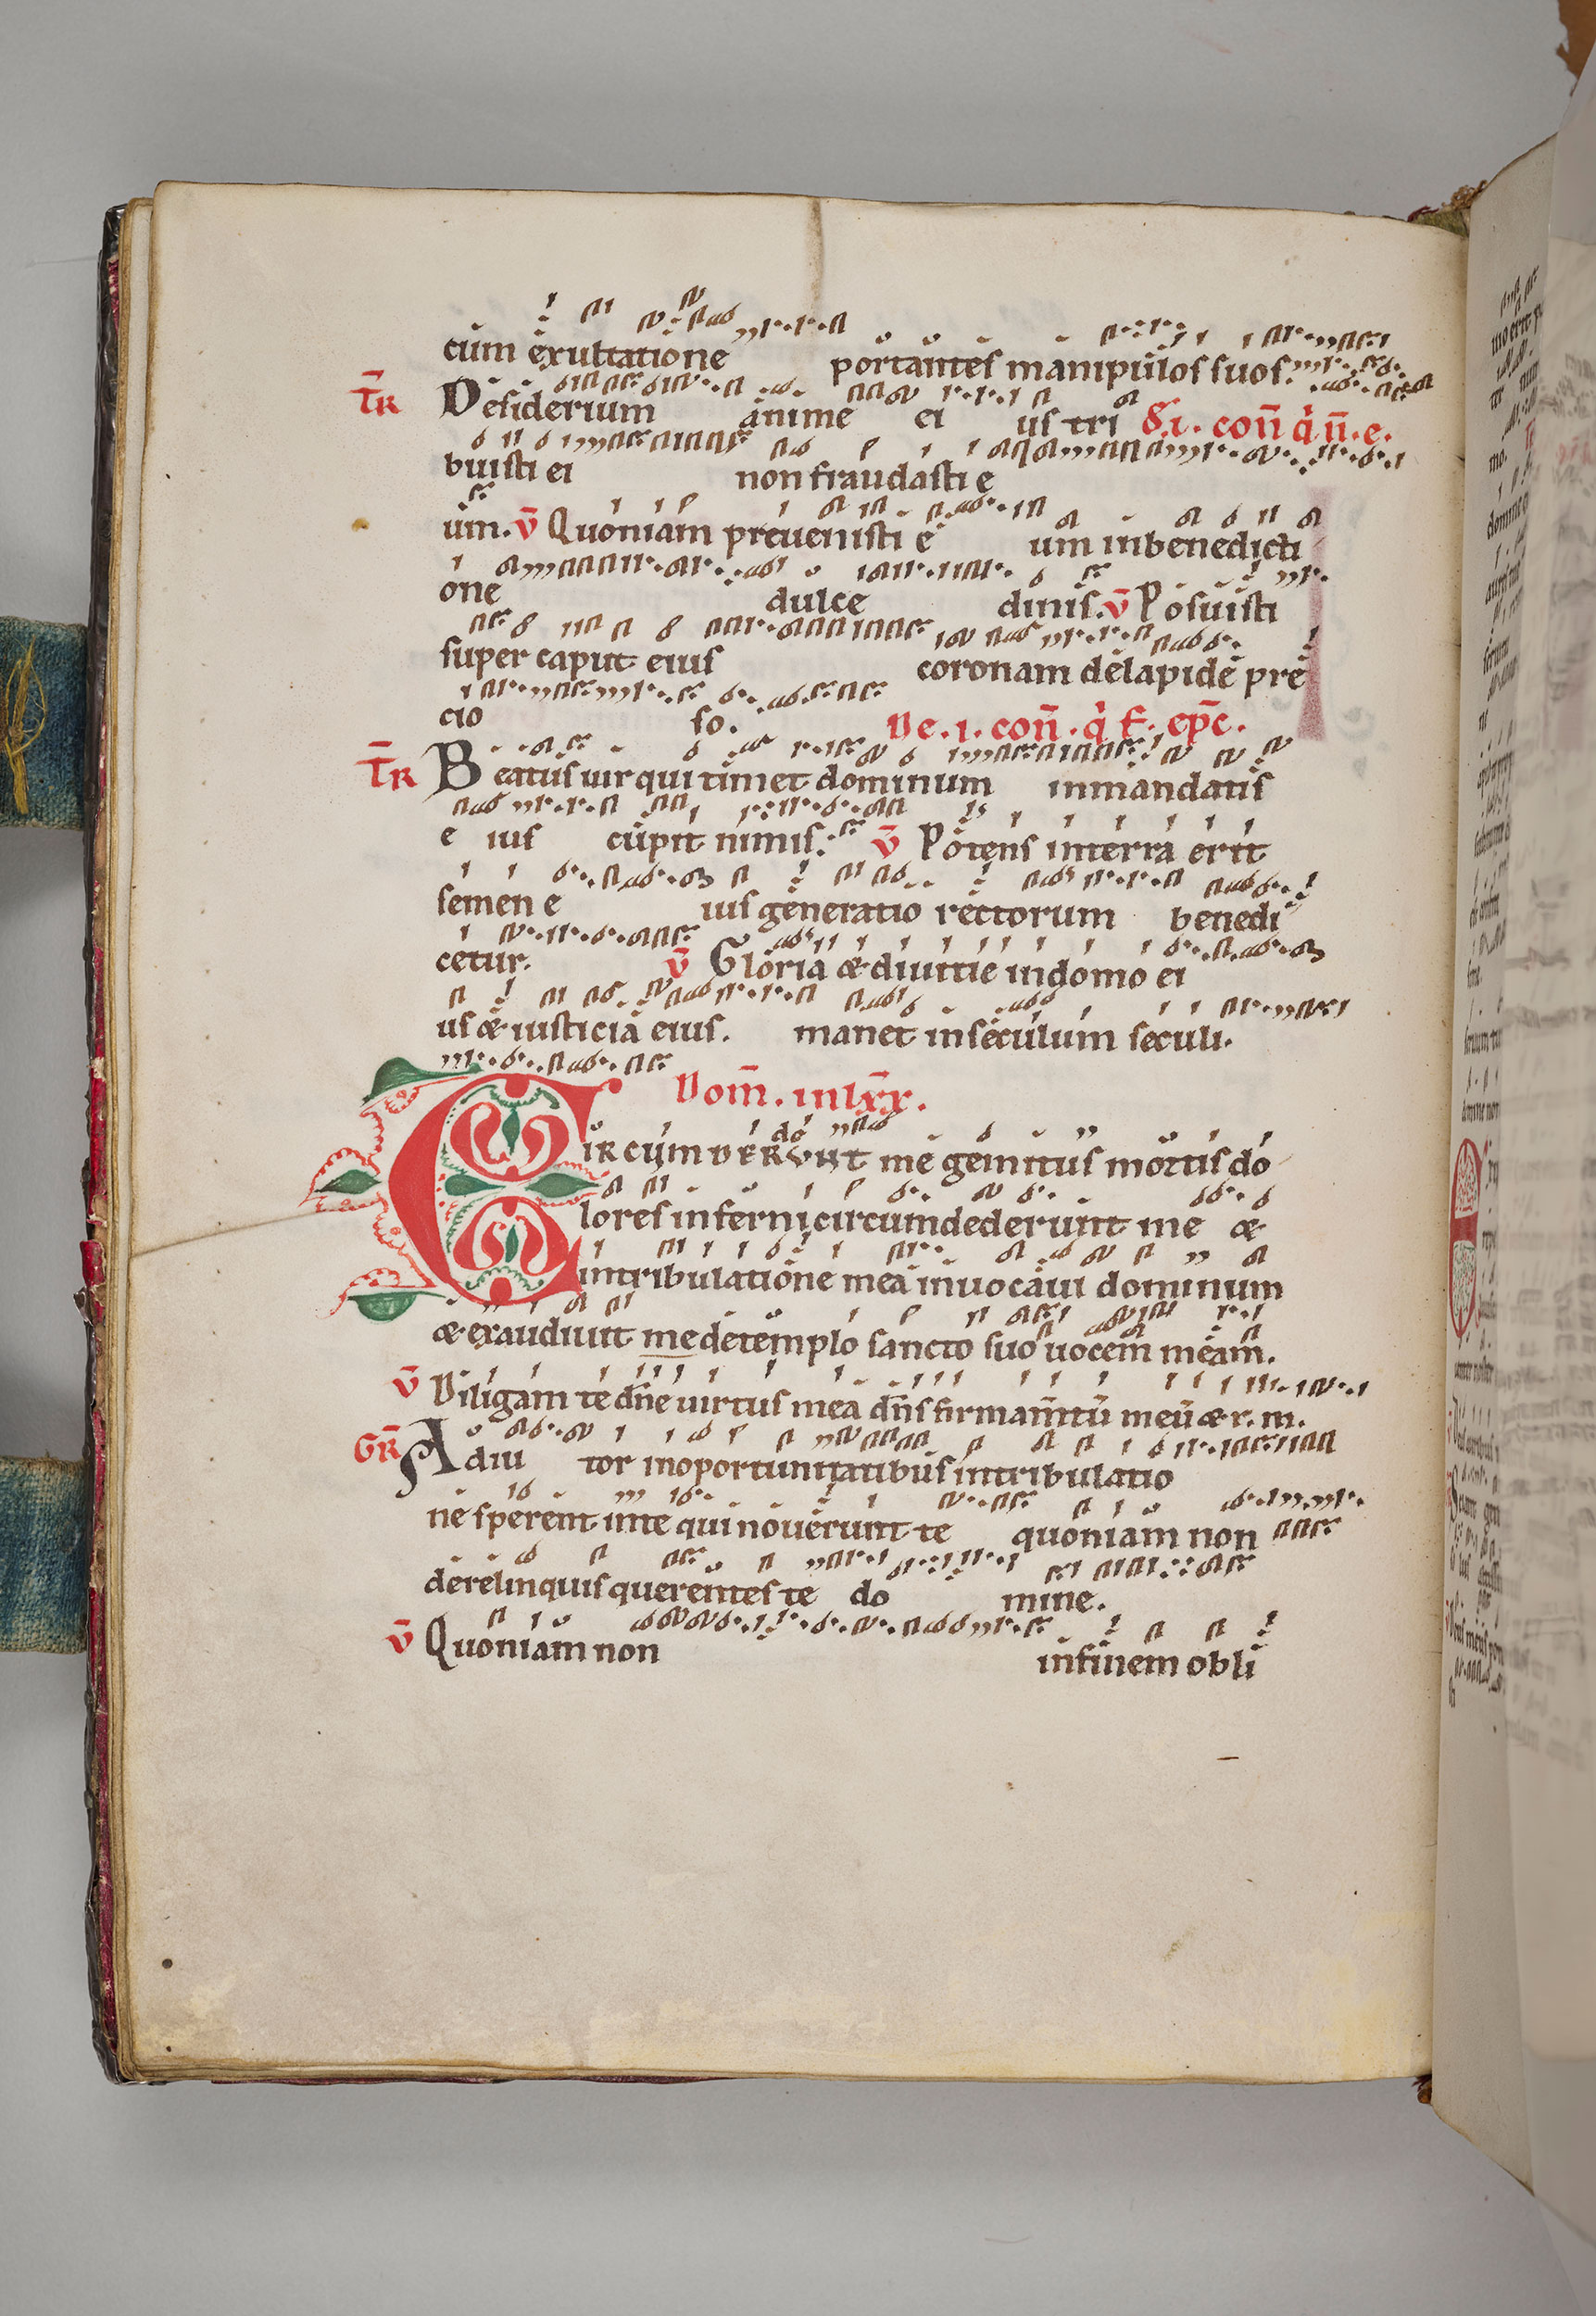 cum exultatione portantes manipulos suos.
TR Desiderium anime ei us tri S͛. ı. con̄ q̇ n̄. e.
buisti ei non fraudasti e
um. v̄ Quoniam preuenisti e um in benedicti
one dulce dinis. v̄ Posuisti
super caput eius coronam de lapide pre
cio so. De .ı. con̄ . q̇ f. ep̄c.
TR Beatus uir qui timet dominum in mandatis
e ius cupit nimis. v̄ Potens in terra erit
semen e ius generatio rectorum benedi
cetur. v̄ Gloria & diuitie in domo ei
us & iusticia eius. manet in seculum seculi.
Dom̄. in lxx̄.
CIRCUMDEDERUNT me gemitus mortis do
lores inferni circumdederunt me &
in tribulatione mea inuocaui dominum
& exaudiuit me de templo sancto suo uocem meam.
v̄ Diligam te dn̄e uirtus mea dn̄s firmam̄tū meū & r. m.
GR Adiu tor in oportunitatibus in tribulatio
ne sperent in te qui nouerunt te quoniam non
derelinquis querentes te do mine.
v̄ Quoniam non in finem obli